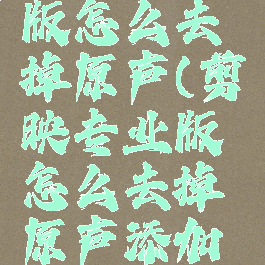 版怎么去
掉原声(剪
映专业版
怎么去掉
原声添加